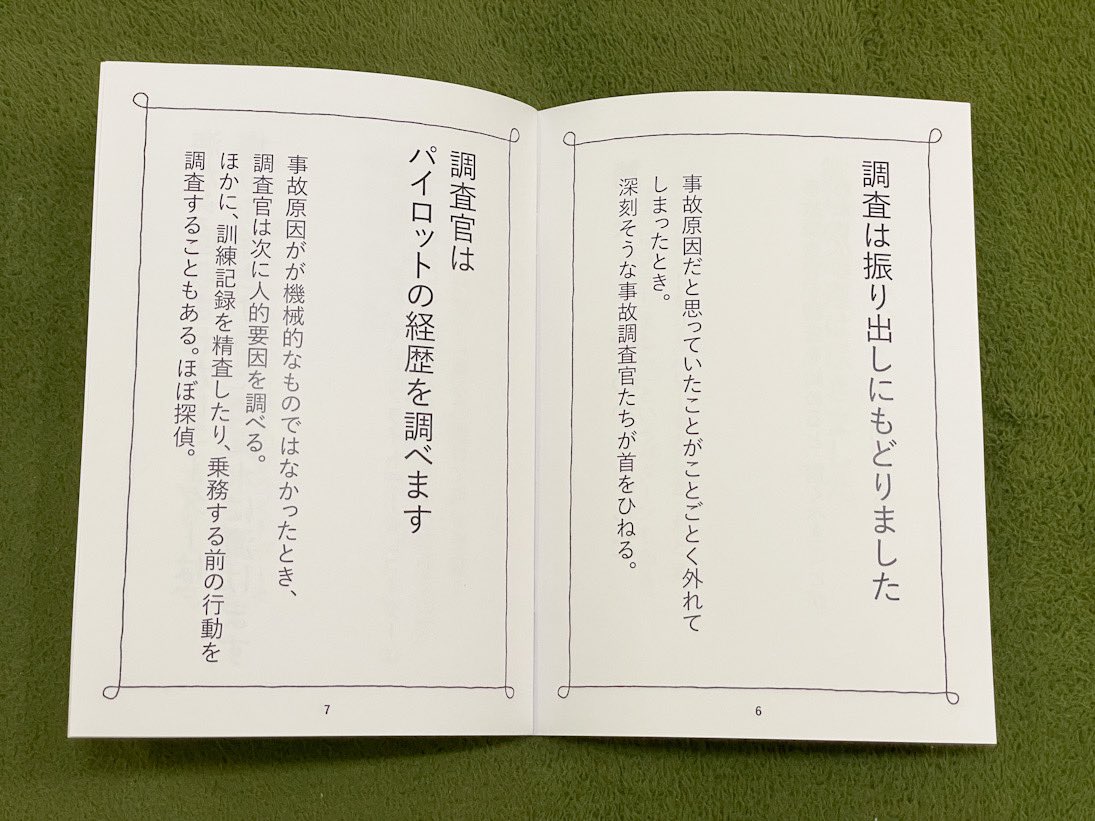 調査は振り出しにもどりました
事故原因だと思っていたことがことごとく外れて
しまったとき。
深刻そうな事故調査官たちが首をひねる。
6
調査官は
パイロットの経歴を調べます
事故原因がが機械的なものではなかったとき、
調査官は次に人的要因を調べる。
ほかに、訓練記録を精査したり、乗務する前の行動を
調査することもある。ほぼ探偵。
7